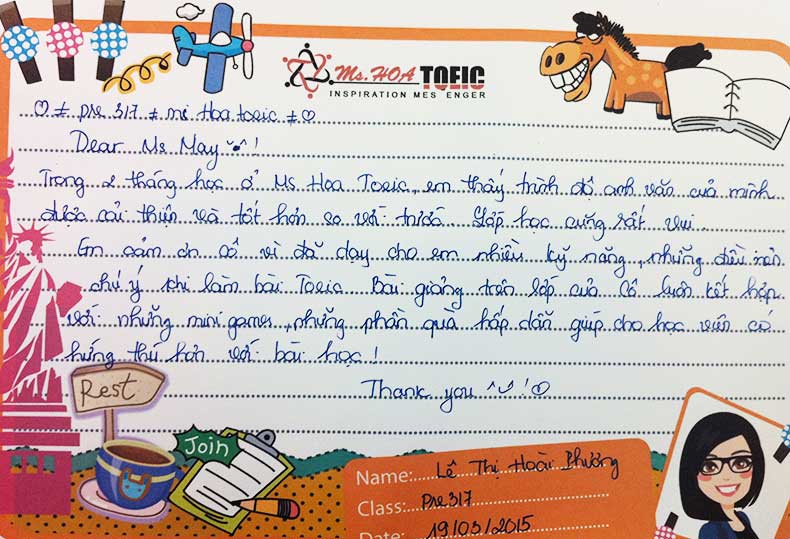 Ms. HOA TOEIC
INSPIRATION MES ENGER
♡ # pre 317 # ms Hoa toeic # ♡
Dear Ms May !
Trong 2 tháng học ở Ms Hoa Toeic, em thấy trình độ anh văn của mình
được cải thiện và tốt hơn so với trước. Lớp học cũng rất vui.
Em cảm ơn cô vì đã dạy cho em nhiều kỹ năng, những điều cần
chú ý khi làm bài Toeic. Bài giảng trên lớp của cô luôn kết hợp
với những mini games, những phần quà hấp dẫn giúp cho học viên có
hứng thú hơn với bài học!
Thank you ^^ ! ☺
Rest
Join
Name: Lê Thị Hoài Phương
Class: Pre317
Date: 19/03/2015